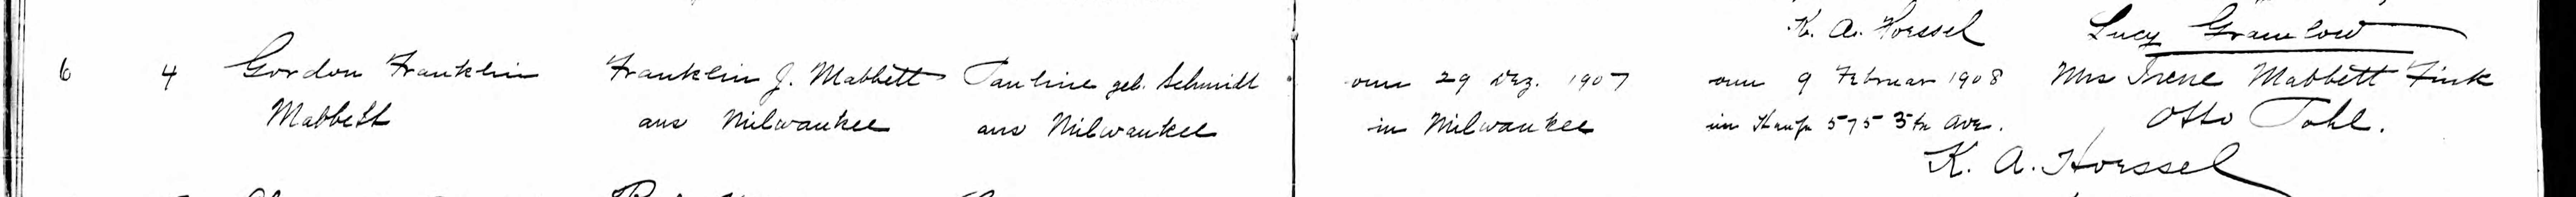 K. A. Hoessel Lucy
6 4 Gordon Franklin Franklin J. Mabbett Pauline geb. Schmidt am 29 Dez. 1907 am 9 Februar 1908 Mrs Irene Mabbett Fink
Mabbett aus Milwaukee aus Milwaukee in Milwaukee im 575 Ave. Otto
K. A. Hoessel